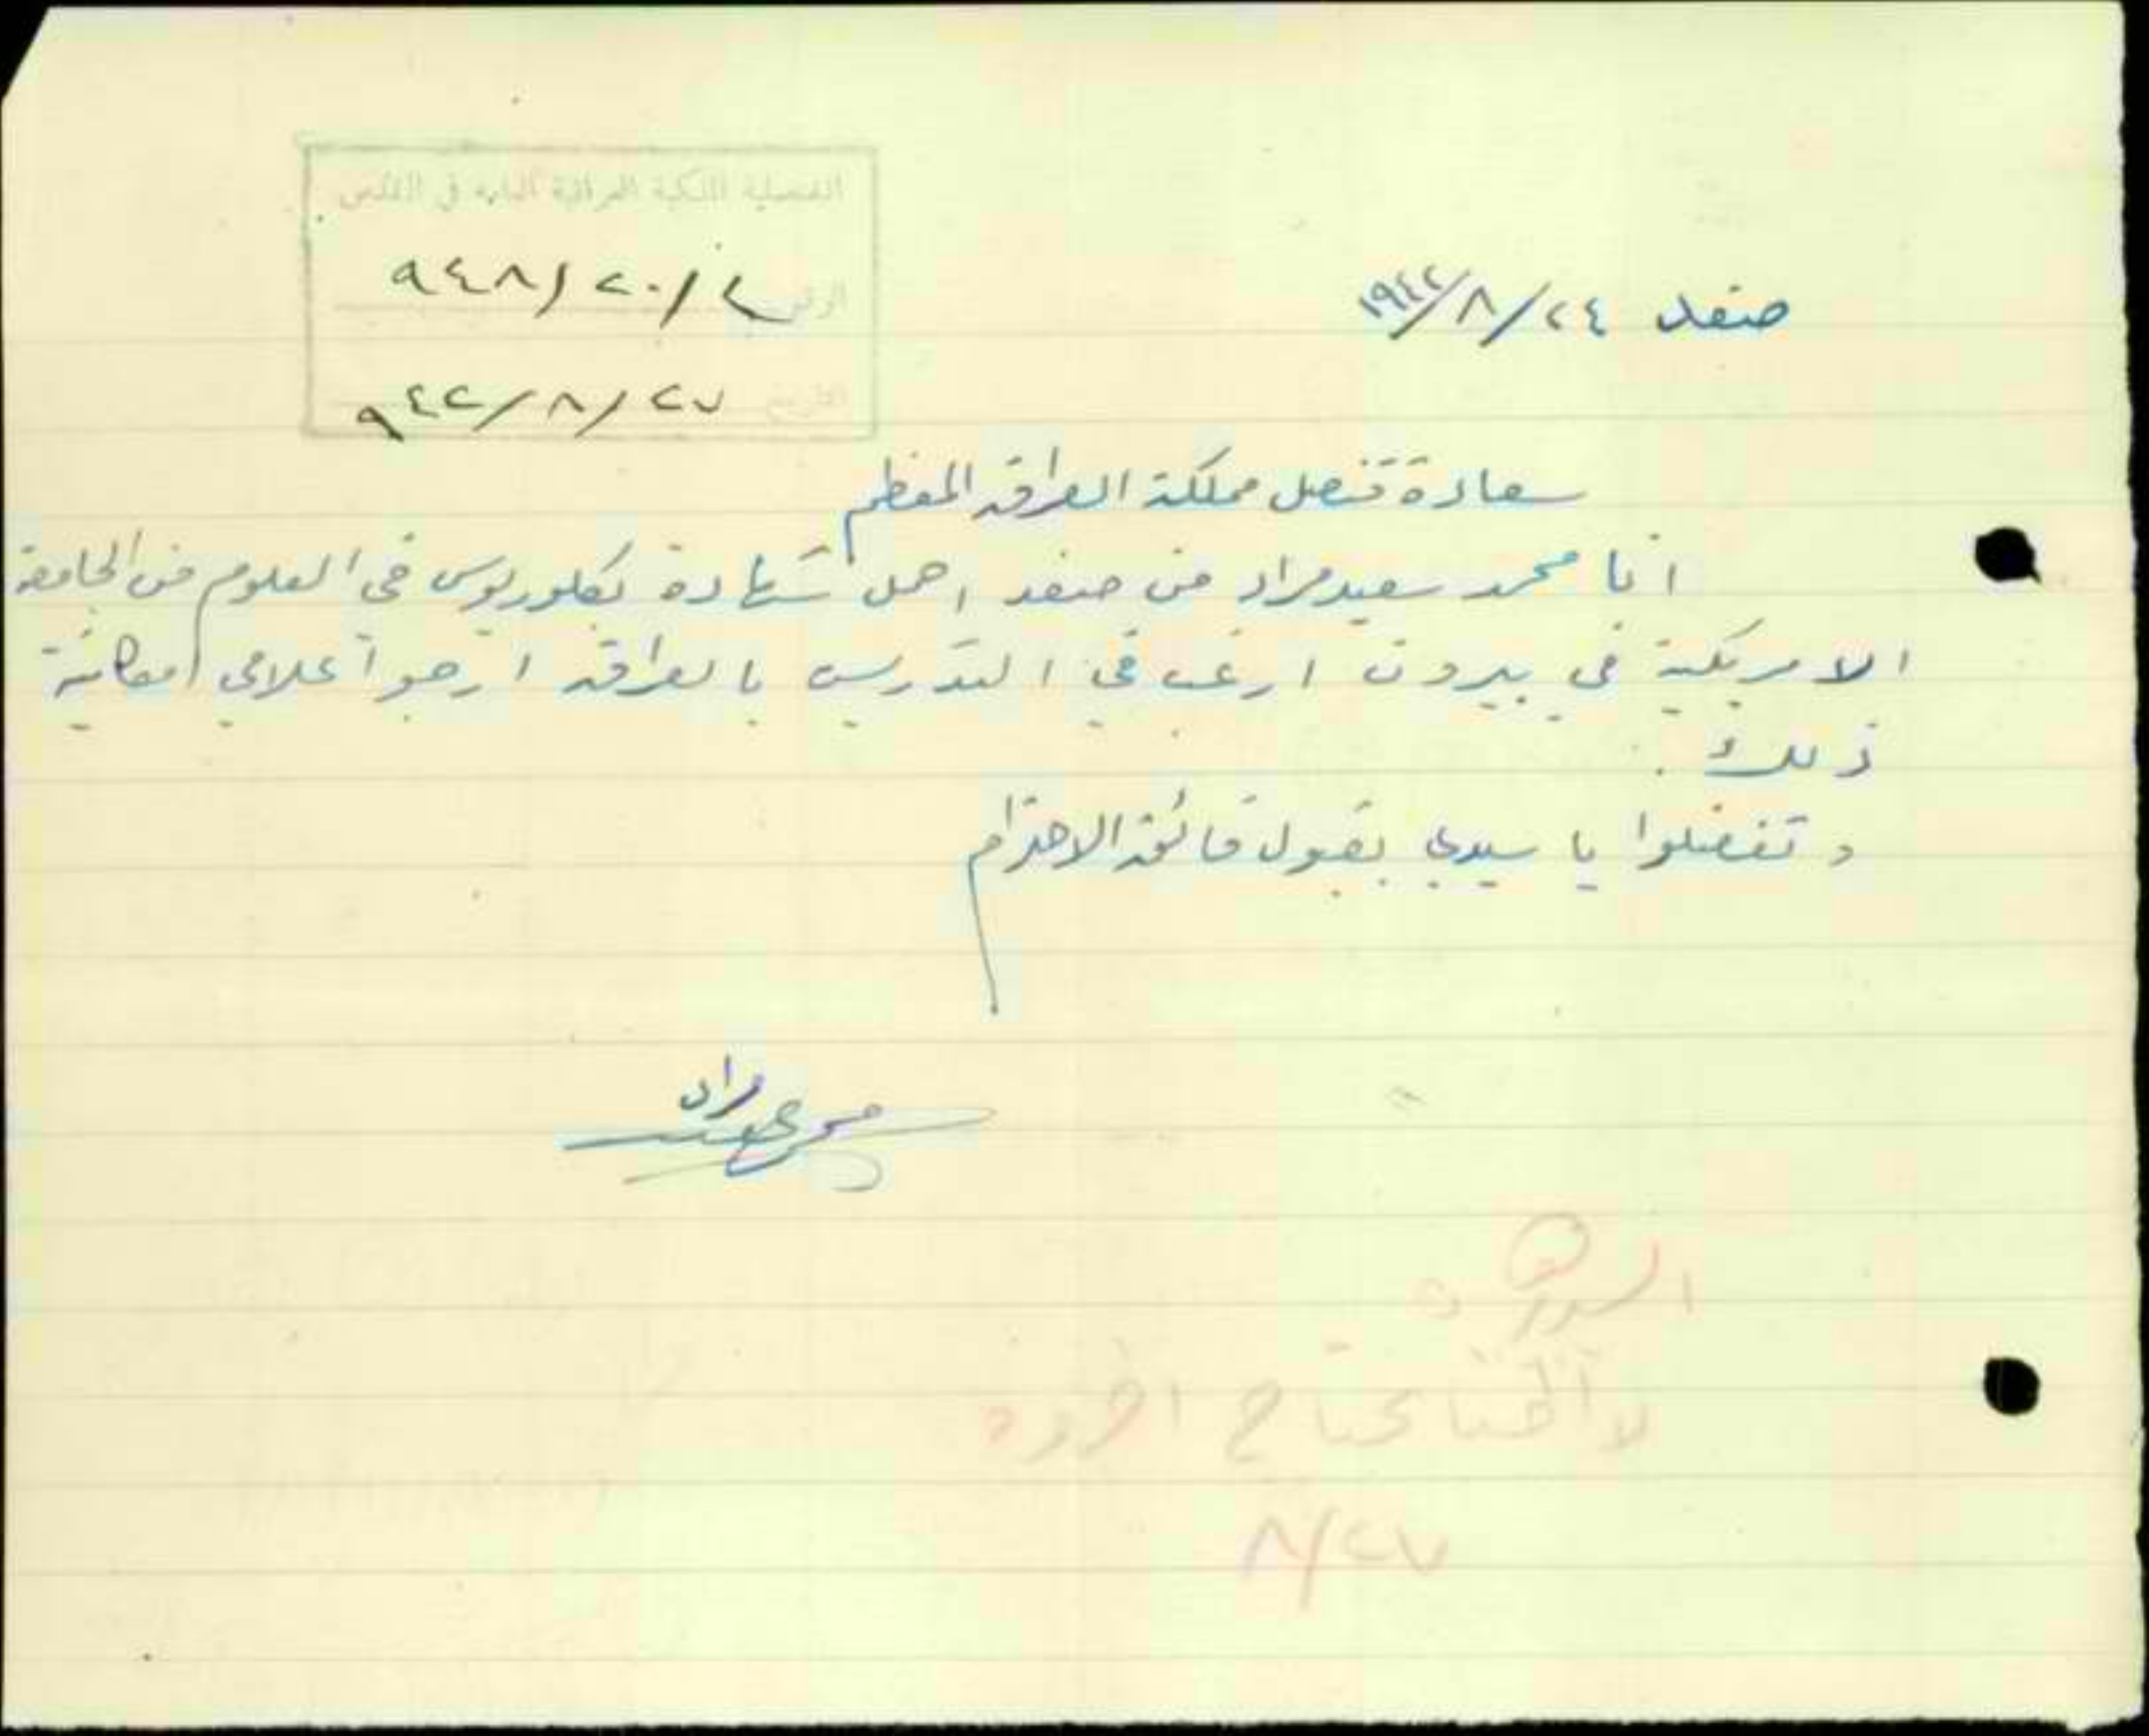 القنصلية الملكية العراقية العامة في القدس
الرقم ٩٤٨/٢٠/٤
التاريخ ٩٤٢/٨/٢٧
صفد ١٩٤٢/٨/٢٤
سعادة قنصل مملكة العراق المعظم
انا محمد سعيد مراد من صفد احمل شهادة بكلوريوس في العلوم من الجامعة
الامريكية في بيروت ارغب في التدريس بالعراق ارجو اعلامي امكانية
ذلك .
وتفضلوا يا سيدي بقبول فائق الاحترام
محمد سعيد مراد
٨/٢٧